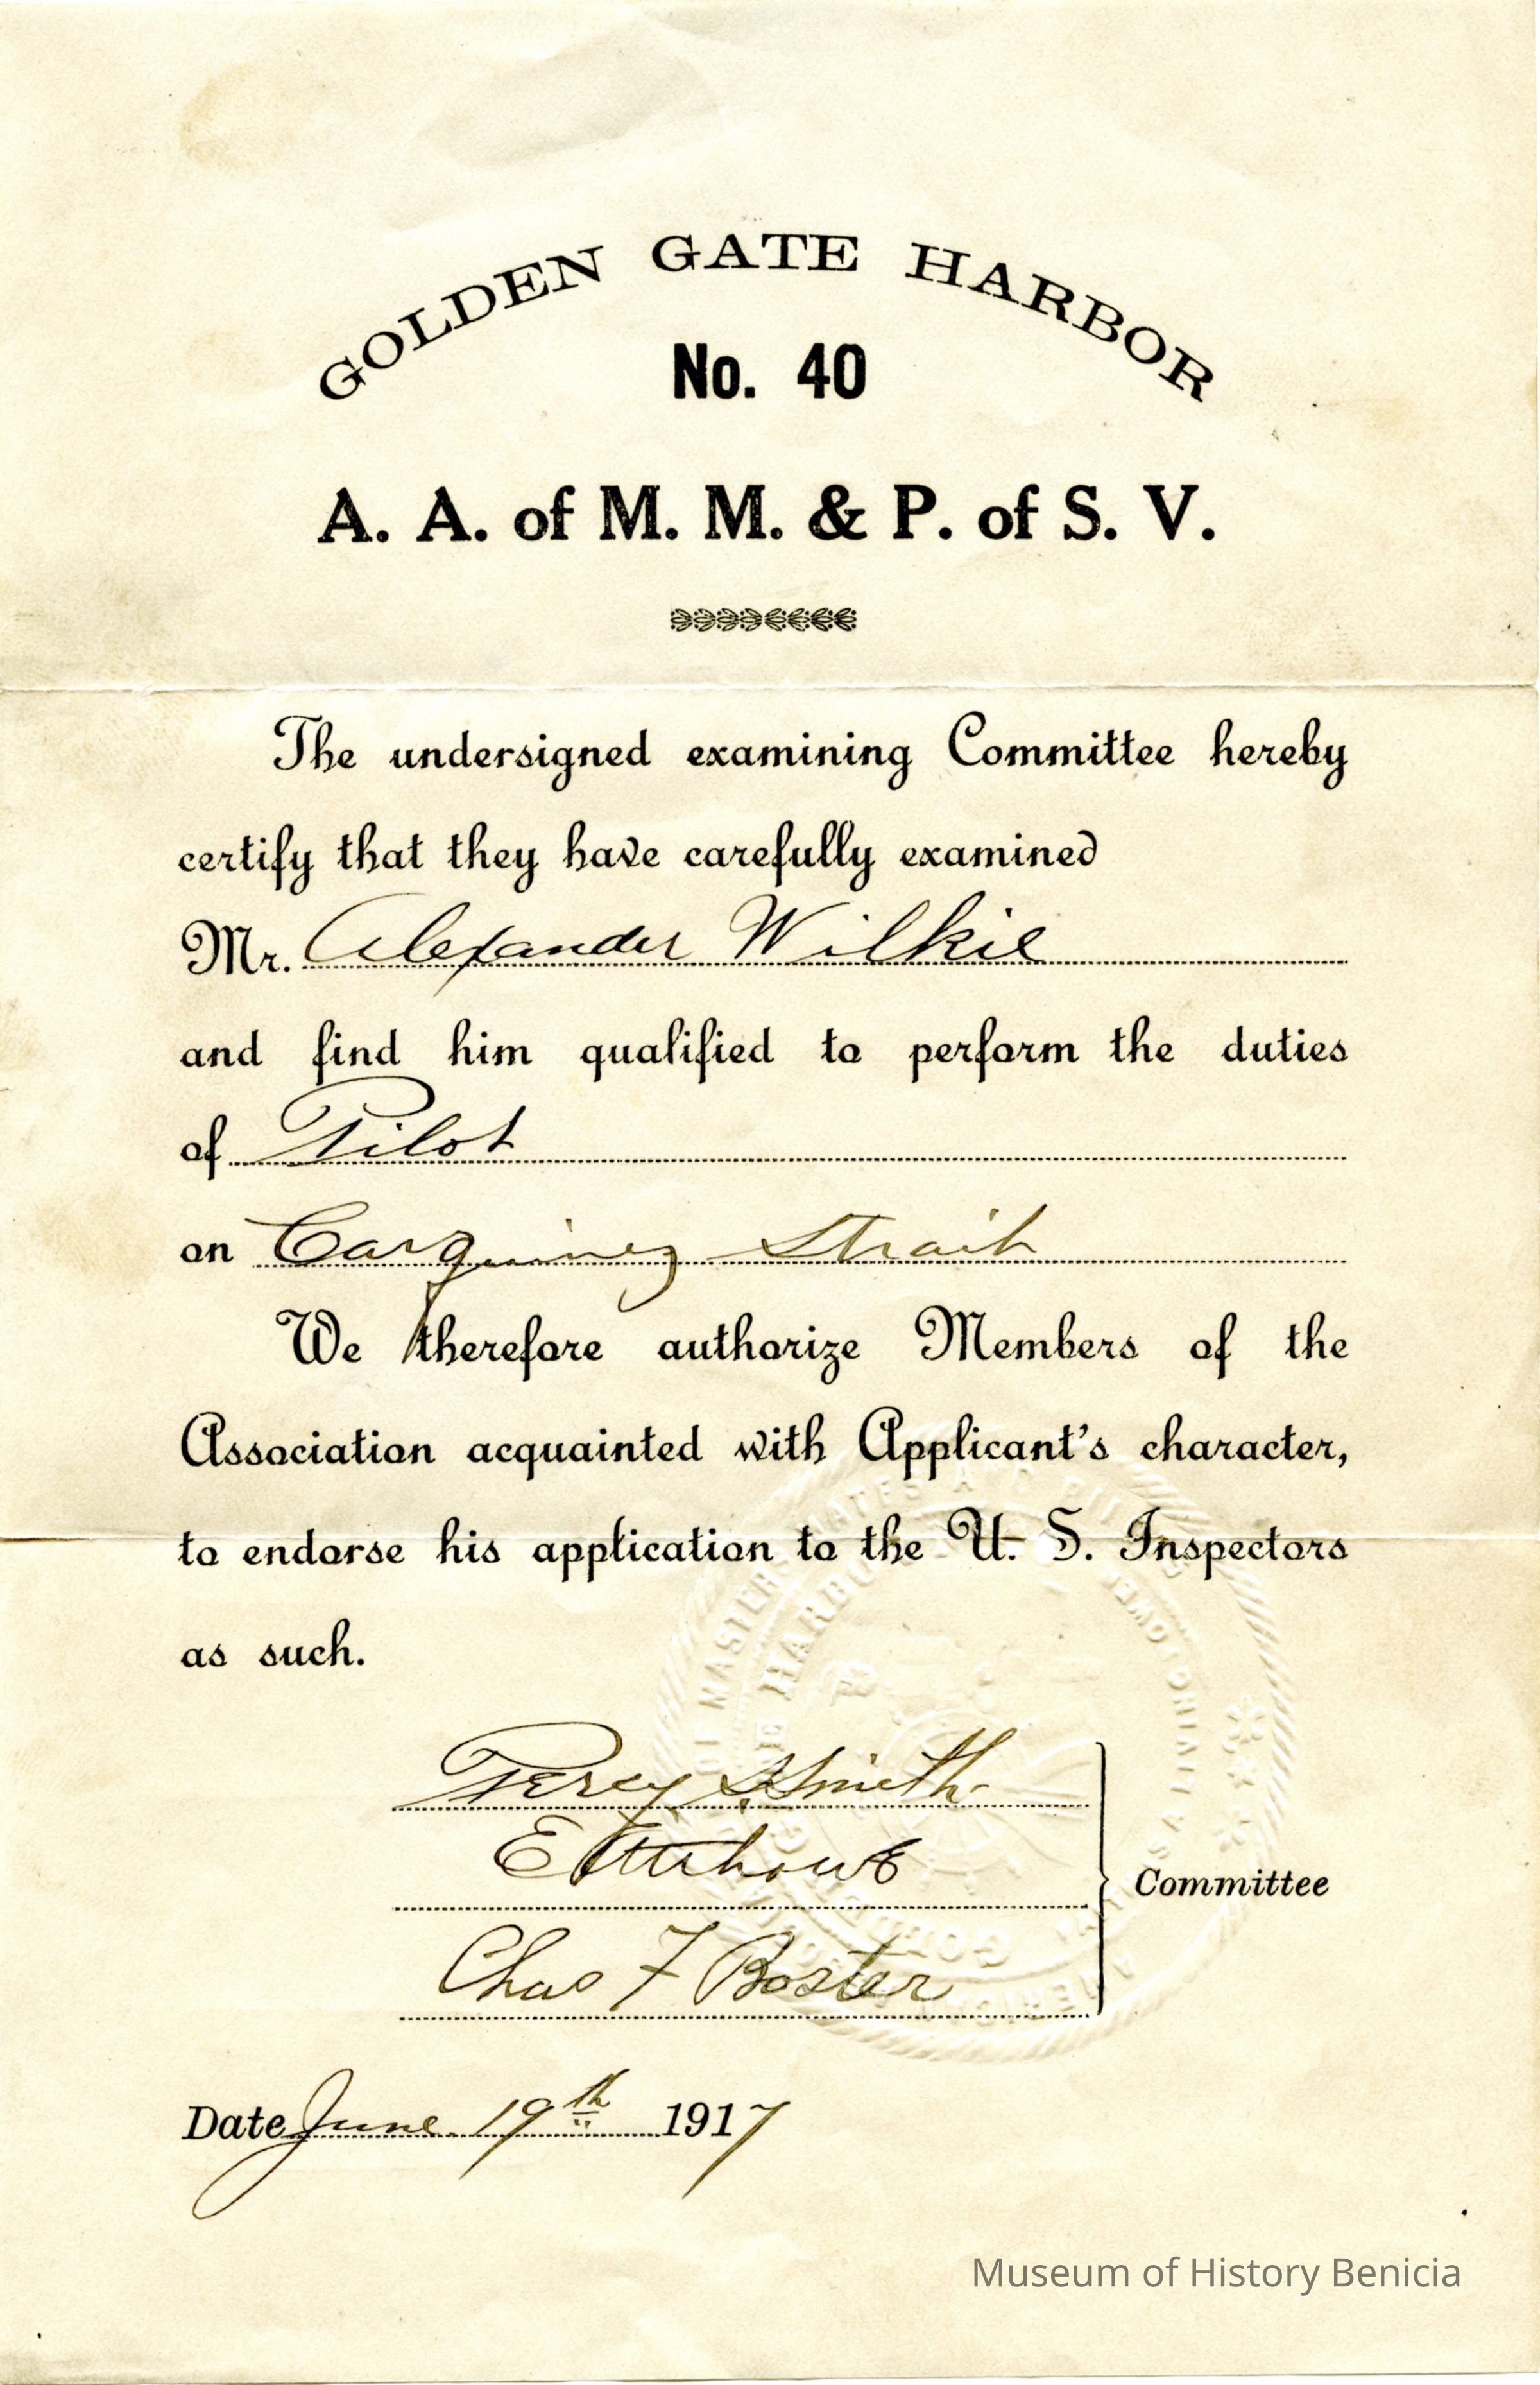 GOLDEN GATE HARBOR
No. 40
A. A. of M. M. & P. of S. V.
The undersigned examining Committee hereby
certify that they have carefully examined
Mr. Alexander Wilkie
and find him qualified to perform the duties
of Pilot
on Carquinez Strait
We therefore authorize Members of the
Association acquainted with Applicant's character,
to endorse his application to the U. S. Inspectors
as such.
Percy S Smith
E
Chas F Boster
Committee
Date June 19th 1917
MASTERS MATES PILOTS
HARBOR
Museum of History Benicia